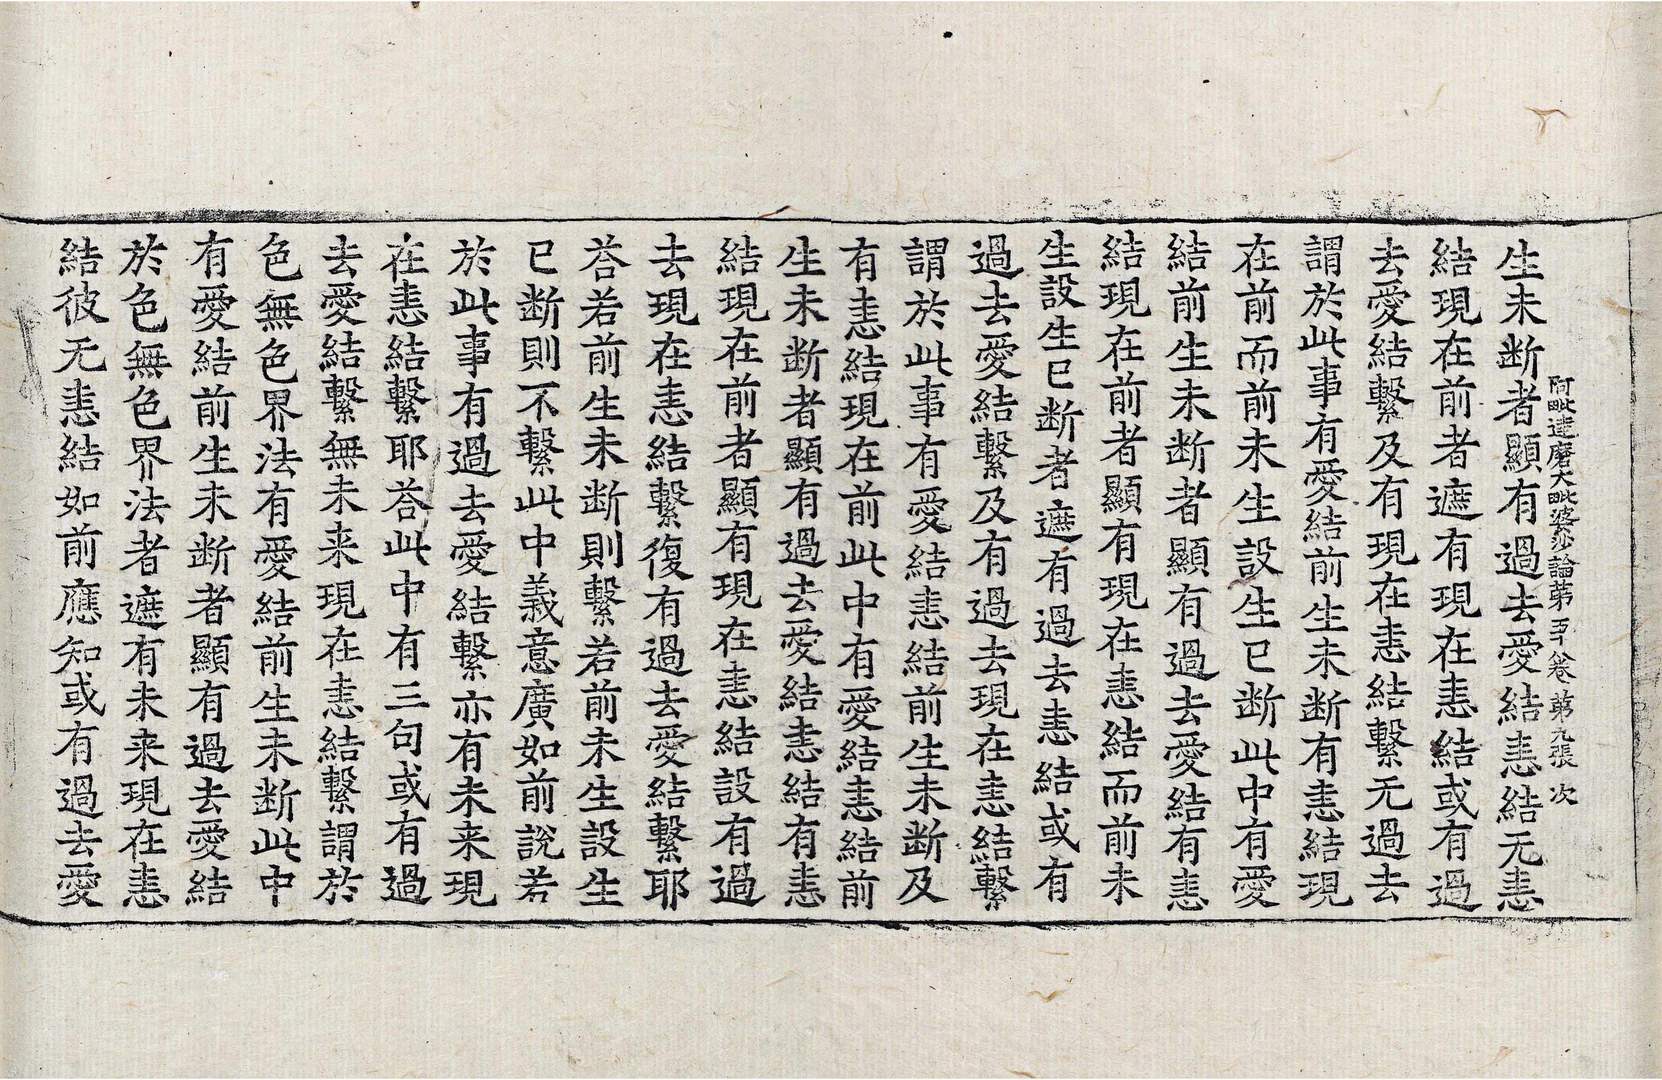 阿毗達磨大毗婆沙論第五十八卷 第九張 次
生未断者顯有過去愛結恚結无恚
結現在前者遮有現在恚結或有過
去愛結繫及有現在恚結繫无過去
謂於此事有愛結前生未断有恚結現
在前而前未生設生已断此中有愛
結前生未断者顯有過去愛結有恚
結現在前者顯有現在恚結而前未
生設生已断者遮有過去恚結或有
過去愛結繫及有過去現在恚結繫
謂於此事有愛結恚結前生未断及
有恚結現在前此中有愛結恚結前
生未断者顯有過去愛結恚結有恚
結現在前者顯有現在恚結設有過
去現在恚結繫復有過去愛結繫耶
荅若前生未断則繫若前未生設生
已断則不繫此中義意廣如前說若
於此事有過去愛結繫亦有未来現
在恚結繫耶荅此中有三句或有過
去愛結繫無未来現在恚結繫謂於
色無色界法有愛結前生未断此中
有愛結前生未断者顯有過去愛結
於色無色界法者遮有未来現在恚
結彼无恚結如前應知或有過去愛